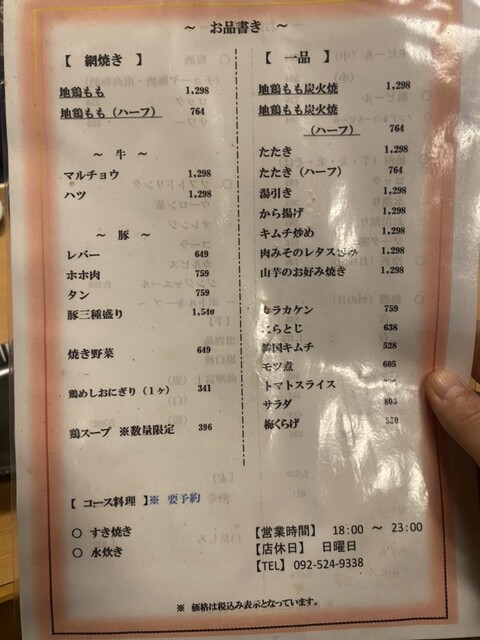 ～ お品書き ～
【 網焼き 】
地鶏もも 1,298
地鶏もも（ハーフ） 764
～ 牛 ～
マルチョウ 1,298
ハツ 1,298
～ 豚 ～
レバー 649
ホホ肉 759
タン 759
豚三種盛り 1,540
焼き野菜 649
鶏めしおにぎり（１ヶ） 341
鶏スープ ※数量限定 396
【 コース料理 】※ 要予約
○ すき焼き
○ 水炊き
【 一品 】
地鶏もも炭火焼 1,298
地鶏もも炭火焼
（ハーフ） 764
たたき 1,298
たたき（ハーフ） 764
湯引き 1,298
から揚げ 1,298
キムチ炒め 1,298
肉みそのレタス包み 1,298
山芋のお好み焼き 1,298
カラカケン 759
にらとじ 638
韓国キムチ 528
モツ煮 605
トマトスライス
サラダ 803
梅くらげ 550
【営業時間】 18:00 ～ 23:00
【店休日】 日曜日
【TEL】 092-524-9338
※ 価格は税込み表示となっています。